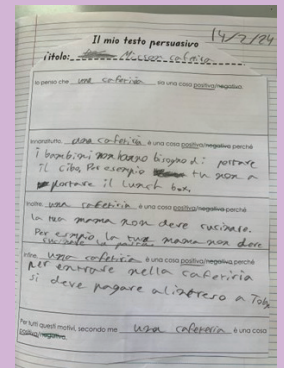 14/2/24
Il mio testo persuasivo
Titolo:
Io penso che una cafetiria sia una cosa positiva/negativa.
Innanzitutto, una cafetiria è una cosa positiva/negativa perché
i bambini non hanno bisogno di portare
il cibo. Per esempio tu non a
portare il lunch box.
Inoltre una cafetiria è una cosa positiva/negativa perché
la tua mama non deve cucinare.
Per esempio, la tua mama non deve
cucinare la pasta.
Infine, una cafetiria è una cosa positiva/negativa perché
per entrare nella cafetiria
si deve pagare
Per tutti questi motivi, secondo me una cafeteria è una cosa
positiva/negativa.